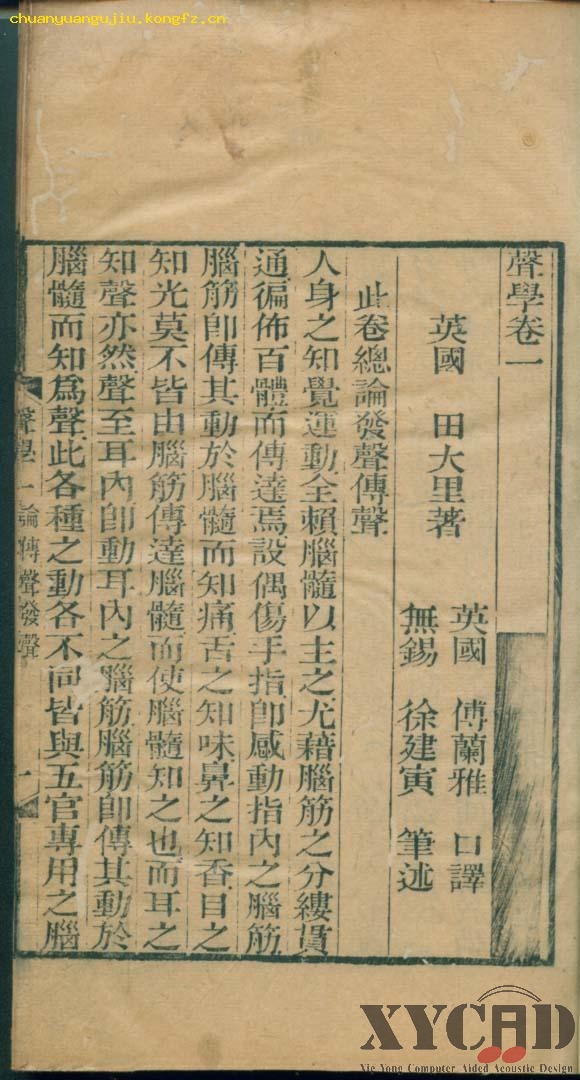 chuanyuangujiu.kongfz.cn
聲學卷一
英國 田大里著
英國 傅蘭雅 口譯
無錫 徐建寅 筆述
此卷總論發聲傳聲
人身之知覺運動全賴腦髓以主之尤藉腦筋之分縷貫
通徧佈百體而傳達焉設偶傷手指卽感動指內之腦筋
腦筋卽傳其動於腦髓而知痛舌之知味鼻之知香目之
知光莫不皆由腦筋傳達腦髓而使腦髓知之也而耳之
知聲亦然聲至耳內卽動耳內之腦筋腦筋卽傳其動於
腦髓而知爲聲此各種之動各不同皆與五官專用之腦
聲學一論傳聲發聲 一
XYCAD
Xie Yong Computer Aided Acoustic Design